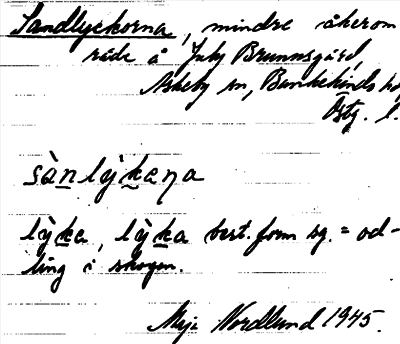 Sandlyckorna, mindre åkerom
råde å Juby Brunnsgård,
Askeby sn, Bankekinds hd
Östg. l.
sànlỳkaṇa
lỳka, lỳka best. form sg. = od-
ling i skogen.
Maja Nordlund 1945.